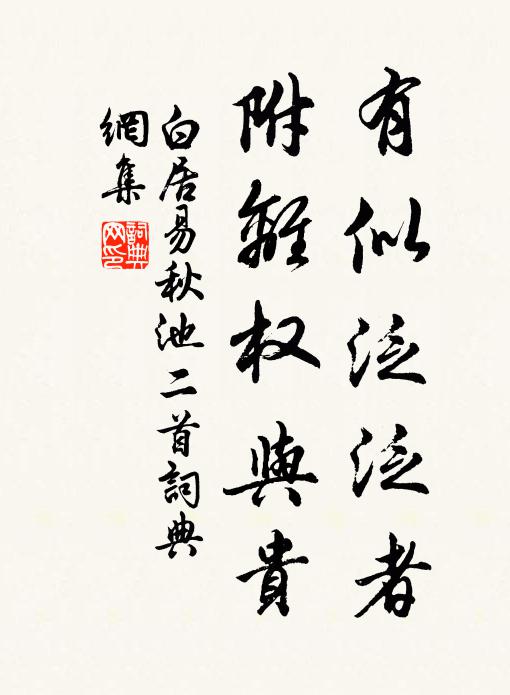 有似泛泛者
附離权與貴
白居易秋池二首詞典
網集
詞典
网印